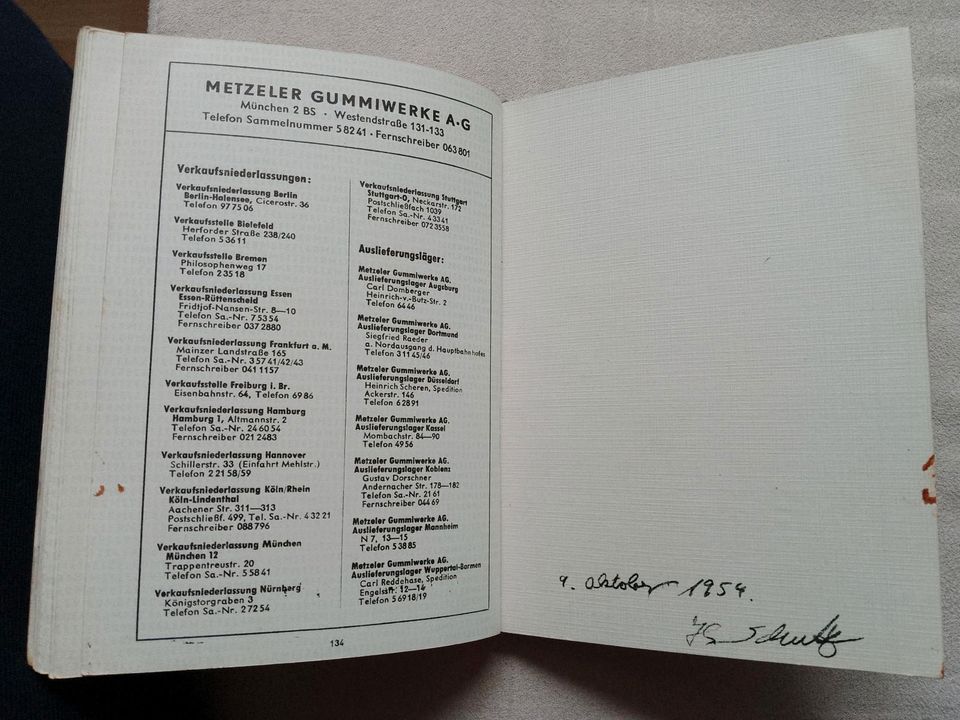 METZELER GUMMIWERKE A-G
München 2 BS · Westendstraße 131-133
Telefon Sammelnummer 5 82 41 · Fernschreiber 063 801
Verkaufsniederlassungen:
Verkaufsniederlassung Berlin
Berlin-Halensee, Cicerostr. 36
Telefon 97 75 06
Verkaufsstelle Bielefeld
Herforder Straße 238/240
Telefon 5 36 11
Verkaufsstelle Bremen
Philosophenweg 17
Telefon 2 35 18
Verkaufsniederlassung Essen
Essen-Rüttenscheid
Fridtjof-Nansen-Str. 8—10
Telefon Sa.-Nr. 7 53 54
Fernschreiber 037 2880
Verkaufsniederlassung Frankfurt a. M.
Mainzer Landstraße 165
Telefon Sa.-Nr. 3 57 41/42/43
Fernschreiber 041 1157
Verkaufsstelle Freiburg i. Br.
Eisenbahnstr. 64, Telefon 69 86
Verkaufsniederlassung Hamburg
Hamburg 1, Altmannstr. 2
Telefon Sa.-Nr. 24 60 54
Fernschreiber 021 2483
Verkaufsniederlassung Hannover
Schillerstr. 33 (Einfahrt Mehlstr.)
Telefon 2 21 58/59
Verkaufsniederlassung Köln/Rhein
Köln-Lindenthal
Aachener Str. 311—313
Postschließf. 499, Tel. Sa.-Nr. 4 32 21
Fernschreiber 088 796
Verkaufsniederlassung München
München 12
Trappentreustr. 20
Telefon Sa.-Nr. 5 58 41
Verkaufsniederlassung Nürnberg
Königstorgraben 3
Telefon Sa.-Nr. 2 72 54
Verkaufsniederlassung Stuttgart
Stuttgart-O, Neckarstr. 172
Postschließfach 1039
Telefon Sa.-Nr. 4 33 41
Fernschreiber 072 3558
Auslieferungsläger:
Metzeler Gummiwerke AG.
Auslieferungslager Augsburg
Carl Domberger
Heinrich-v.-Butz-Str. 2
Telefon 64 46
Metzeler Gummiwerke AG.
Auslieferungslager Dortmund
Siegfried Raeder
a. Nordausgang d. Hauptbahnhofes
Telefon 3 11 45/46
Metzeler Gummiwerke AG.
Auslieferungslager Düsseldorf
Heinrich Scheren, Spedition
Ackerstr. 146
Telefon 6 28 91
Metzeler Gummiwerke AG.
Auslieferungslager Kassel
Mombachstr. 84—90
Telefon 49 56
Metzeler Gummiwerke AG.
Auslieferungslager Koblenz
Gustav Dorschner
Andernacher Str. 178—182
Telefon Sa.-Nr. 21 61
Fernschreiber 044 69
Metzeler Gummiwerke AG.
Auslieferungslager Mannheim
N 7, 13—15
Telefon 5 38 85
Metzeler Gummiwerke AG.
Auslieferungslager Wuppertal-Barmen
Carl Reddehase, Spedition
Engelsstr. 12—14
Telefon 5 69 18/19
134
9. Oktober 1954.